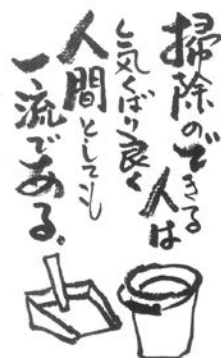 掃除のできる
人は
気くばり良く
人間としても
一流である。